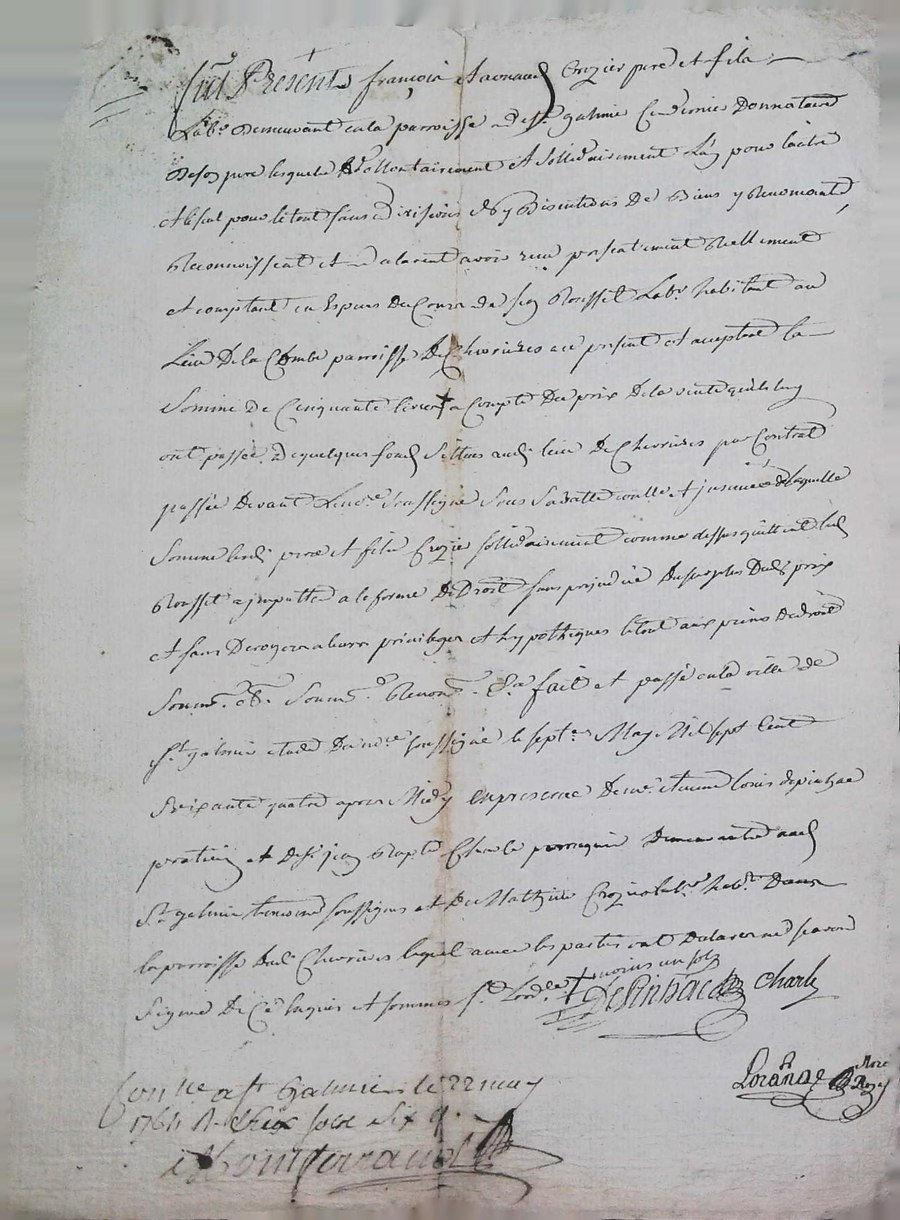 furent Presents françois et arnaud Crozier pere et fils
Lab.rs demeurant en la parroisse de St galmie Ce dernier Donnataire
De son pere lesquels Vollontairement et sollidairement L'un pour L'autre
et le seul pour le tout sans division de discution De Biens y Renoncant
Reconnoissent et declarent avoir receu presentement Reellement
et comptant en Especes Du Cours de jean Rousset Lab.r habitant au
Lieu De la Combe parroisse De Chevrieres a ce present et acceptant la
Somme De Cinquante livres + a Compte Du prix De la vente qu'ils luy
ont passée de quelques fonds scittues aud. lieu De Chevrieres par Contrat
passée Devant Le no.re soussigné sous sa datte conlle et jnsinuée de laquelle
Somme lesd. pere et fils Crozier sollidairement comme dessus quittent led.
Rousset a jmputter a la forme De Droit sans prejudice Du surplus Dud. prix
et sans Deroger a leurs privileges et hypotheques le tout aux peines de droit
Soum. Renon. &a fait et passé en la ville de
St galmie etude Du no.re soussigné le sept.e May Mil sept Cent
Soixante quatre apres Midy en presence De me. etienne louis depinhac
praticien et De Sr jean Bapte Charle perruquier demeurants aud.
St galmie temoins soussignes et De Mathieu Crozier lab.r hab.t Dans
la parroisse dud. Chevrieres lequel avec les parties ont Declaré ne scavoir
signer De Ce enquis et sommes + moins un sol
Depinhac Charle
Loranae
Con.lle a St Galmier le 22 may
1764 R. Seize sols six d.
Montferrand